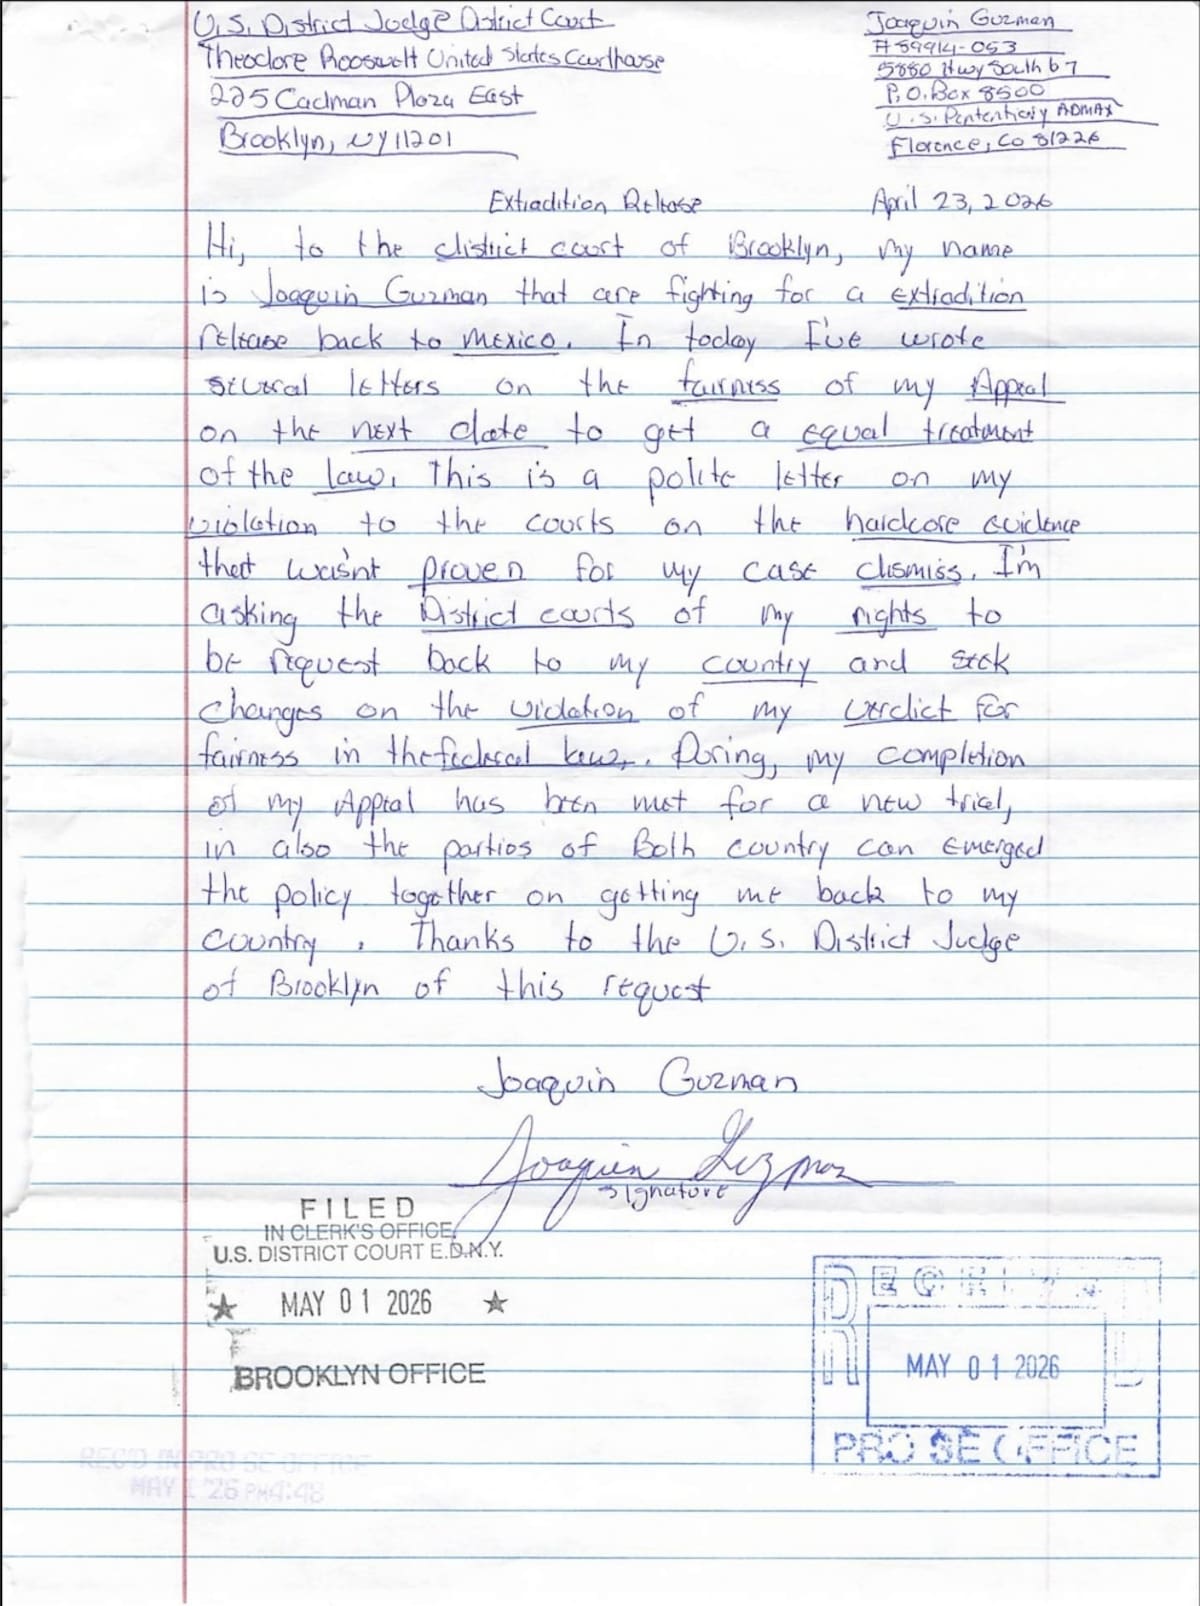 U.S. District Judge District Court
Theodore Roosevelt United States Courthouse
225 Cadman Plaza East
Brooklyn, NY 11201
Joaquin Guzman
# 89914-053
5880 Hwy South 67
P.O. Box 8500
U.S. Pententiary ADMAX
Florence, Co 81226
Extradition Release
April 23, 2026
Hi, to the district court of Brooklyn, my name
is Joaquin Guzman that are fighting for a extradition
release back to Mexico. In today I've wrote
several letters on the fairness of my Appeal
on the next date to get a equal treatment
of the law. This is a polite letter on my
violation to the courts on the hardcore evidence
that wasn't proven for my case dismiss. I'm
asking the District courts of my rights to
be request back to my country and seek
changes on the violation of my verdict for
fairness in the federal law. During, my completion
of my Appeal has been met for a new trial,
in also the parties of Both country can emerged
the policy together on getting me back to my
country. Thanks to the U.S. District Judge
of Brooklyn of this request
Joaquin Guzman
Joaquin Guzman
Signature
FILED
IN CLERK'S OFFICE
U.S. DISTRICT COURT E.D.N.Y.
★ MAY 01 2026 ★
BROOKLYN OFFICE
RECEIVED
MAY 01 2026
PRO SE OFFICE
REC'D IN PRO SE OFFICE
MAY 1 '26 PM4:48